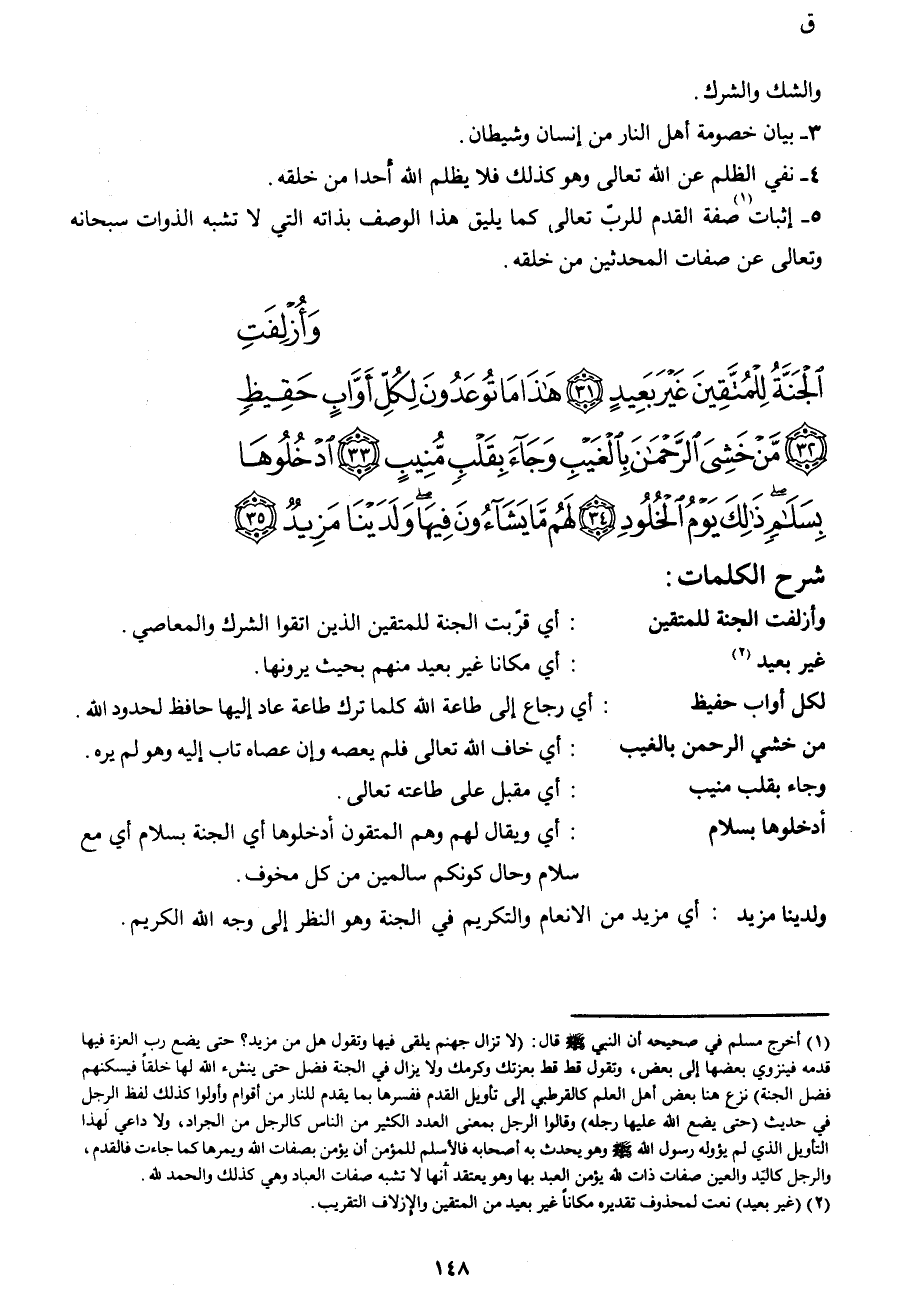 ق
والشك والشرك .
٣ـ بيان خصومة أهل النار من إنسان وشيطان .
٤ـ نفي الظلم عن الله تعالى وهو كذلك فلا يظلم الله أحدا من خلقه .
٥ـ إثبات(١) صفة القدم للربّ تعالى كما يليق هذا الوصف بذاته التي لا تشبه الذوات سبحانه
وتعالى عن صفات المحدثين من خلقه .
وَأُزْلِفَتِ
ٱلْجَنَّةُ لِلْمُتَّقِينَ غَيْرَ بَعِيدٍ ﴿٣١﴾ هَٰذَا مَا تُوعَدُونَ لِكُلِّ أَوَّابٍ حَفِيظٍ
﴿٣٢﴾ مَّنْ خَشِىَ ٱلرَّحْمَٰنَ بِٱلْغَيْبِ وَجَآءَ بِقَلْبٍ مُّنِيبٍ ﴿٣٣﴾ ٱدْخُلُوهَا
بِسَلَٰمٍۖ ذَٰلِكَ يَوْمُ ٱلْخُلُودِ ﴿٣٤﴾ لَهُم مَّا يَشَآءُونَ فِيهَاۖ وَلَدَيْنَا مَزِيدٌ ﴿٣٥﴾
شرح الكلمات :
وأزلفت الجنة للمتقين : أي قرّبت الجنة للمتقين الذين اتقوا الشرك والمعاصي .
غير بعيد (٢) : أي مكانا غير بعيد منهم بحيث يرونها .
لكل أواب حفيظ : أي رجاع إلى طاعة الله كلما ترك طاعة عاد إليها حافظ لحدود الله .
من خشي الرحمن بالغيب : أي خاف الله تعالى فلم يعصه وإن عصاه تاب إليه وهو لم يره .
وجاء بقلب منيب : أي مقبل على طاعته تعالى .
أدخلوها بسلام : أي ويقال لهم وهم المتقون أدخلوها أي الجنة بسلام أي مع
سلام وحال كونكم سالمين من كل مخوف .
ولدينا مزيد : أي مزيد من الانعام والتكريم في الجنة وهو النظر إلى وجه الله الكريم .
(١) أخرج مسلم في صحيحه أن النبي ﷺ قال : (لا تزال جهنم يلقى فيها وتقول هل من مزيد؟ حتى يضع رب العزة فيها
قدمه فينزوي بعضها إلى بعض، وتقول قط قط بعزتك وكرمك ولا يزال في الجنة فضل حتى ينشىء الله لها خلقاً فيسكنهم
فضل الجنة) نزع هنا بعض أهل العلم كالقرطبي إلى تأويل القدم ففسرها بما يقدم للنار من أقوام وأولوا كذلك لفظ الرجل
في حديث (حتى يضع الله عليها رجله) وقالوا الرجل بمعنى العدد الكثير من الناس كالرجل من الجراد، ولا داعي لهذا
التأويل الذي لم يؤوله رسول الله ﷺ وهو يحدث به أصحابه فالأسلم للمؤمن أن يؤمن بصفات الله ويمرها كما جاءت فالقدم ،
والرجل كاليَد والعين صفات ذات لله يؤمن العبد بها وهو يعتقد أنها لا تشبه صفات العباد وهي كذلك والحمد لله .
(٢) (غير بعيد) نعت لمحذوف تقديره مكاناً غير بعيد من المتقين والإزلاف التقريب .
١٤٨